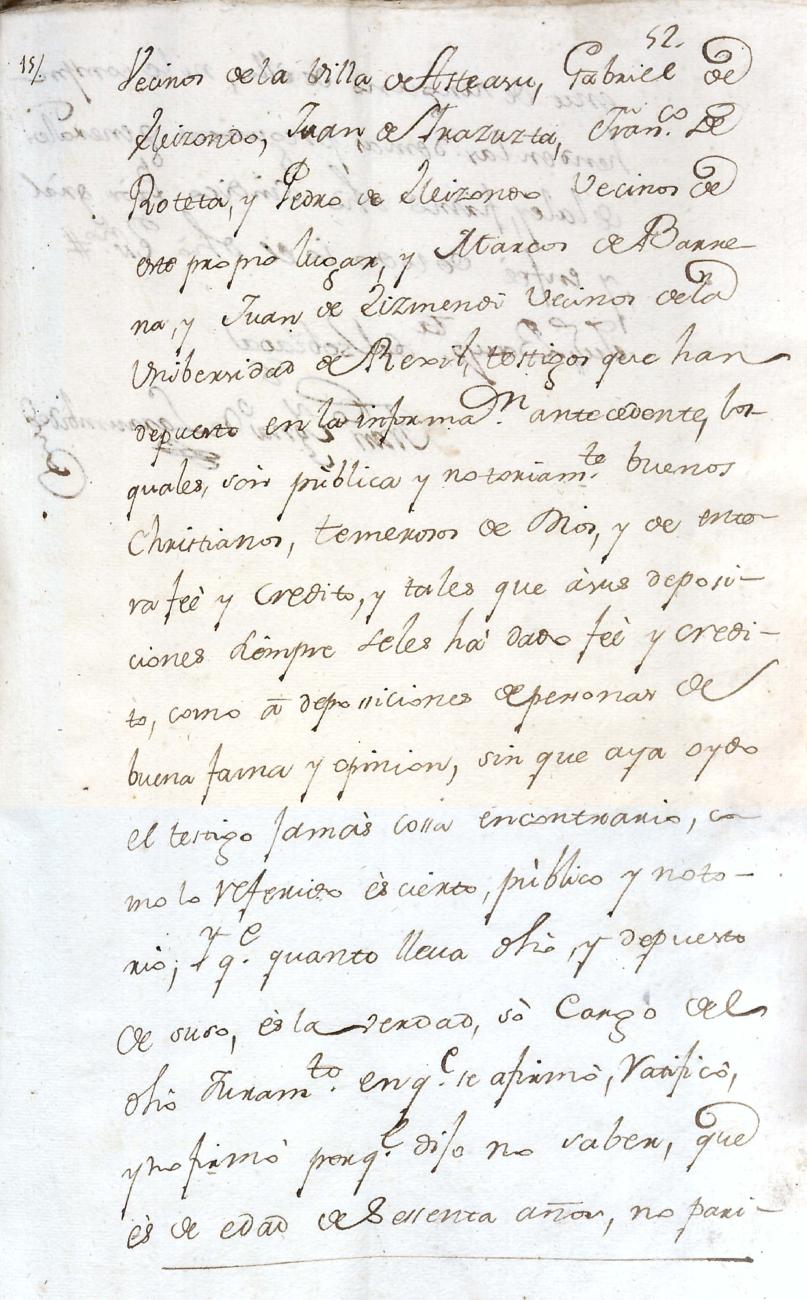 52.
15/.
Vecinos de la Villa de Asteasu, Gabriel de
Elizondo, Juan de Irazuzta, Fran.co de
Roteta, y Pedro de Elizondo Vecinos de
este propio lugar, y Marcos de Barre-
na, y Juan de Lizmendi Vecinos de la
Unibersidad de Rexil, testigos que han
depuesto en la informa.on antecedente, los
quales, son pùblica y notoriam.te buenos
Christianos, temerosos de Dios, y de ente-
ra feè y Credito, y tales que àsus deposi-
ciones siempre seles hà dado feè y credi-
to, como à deposiciones depersonas de
buena fama y opinion, sin que aya oydo
el testigo Jamàs cossa encontrario, co-
mo lo referido ès cierto, pùblico y noto-
rio; y q.e quanto lleva dho, y depuesto
de suso, ès la verdad, sò Cargo del
dho Juram.to en q.e se afirmò, Ratificò,
y no firmò porq.e dijo no saber, que
ès de edad de Sessenta años, no pari-